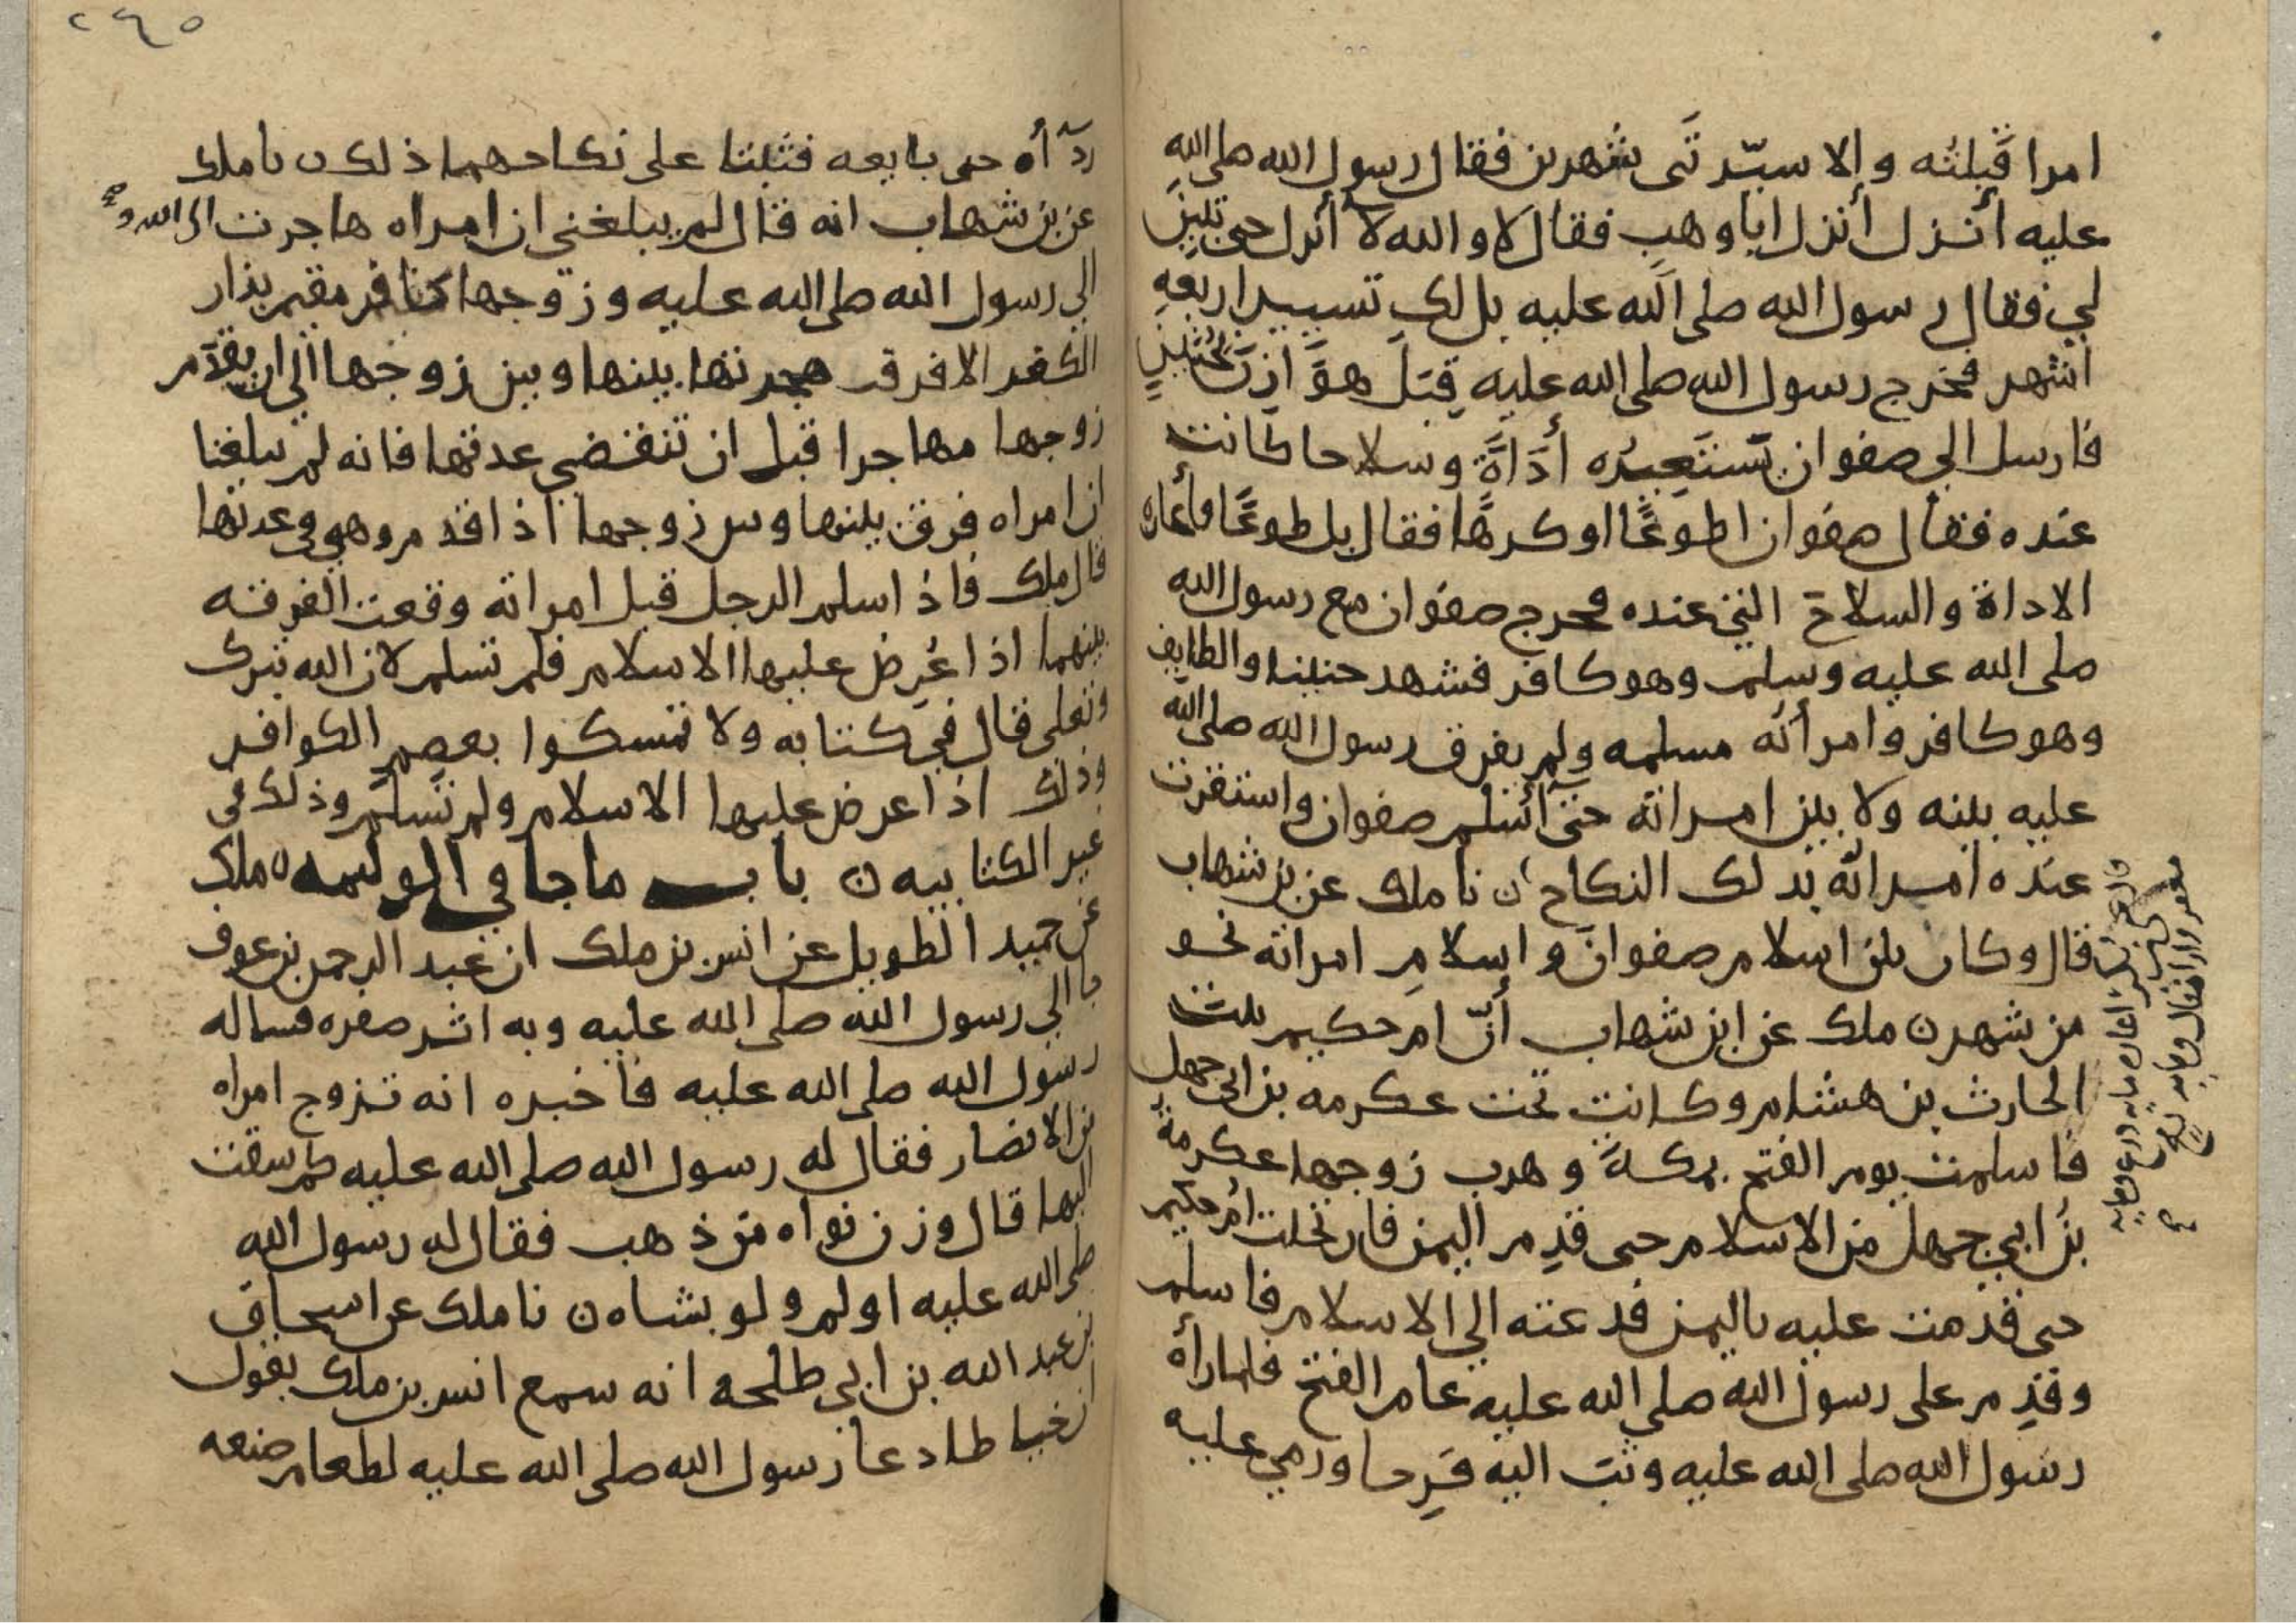 امرا قَبِلتُه والا سيّرتَنى شهرين فقال رسول الله صلى الله
عليه أنزل أنزل ابا وهب فقال لا والله لا أنزل حتى تبين
لي فقال رسول الله صلى الله عليه بل لك تسيير اربعه
اشهر فخرج رسول الله صلى الله عليه قِبَلَ هوازن بحُنَينٍ
فارسل الى صفوان يَستَعيرُه أداةً وسلاحا كانت
عنده فقال صفوان اطوعًا او كرهًا فقال بل طوعًا فأعاره
الاداة والسلاح التي عنده فخرج صفوان مع رسول الله
صلى الله عليه وسلم وهو كافر فشهد حنينا والطايف
وهو كافر وامرأته مسلمه ولم يفرق رسول الله صلى الله
عليه بينه ولا بين امراته حتى أسلم صفوان واستقرت
عنده امراته بذلك النكاح ن نا ملك عن بن شهاب
قال وكان بين اسلام صفوان واسلامِ امراته نحو
من شهر ن ملك عن ابن شهاب أنّ ام حكيم بنت
الحارث بن هشام وكانت تحت عكرمه بن ابي جهل
فاسلمت يوم الفتح بمكة وهرب زوجها عكرمة
بن ابي جهل من الاسلام حتى قدم اليمن فارتحلت ام حكيم
حتى قدمت عليه باليمن فدعته الي الاسلام فاسلم
وقدِم على رسول الله صلى الله عليه عام الفتح فلما رأه
رسول الله صلى الله عليه وثب اليه فَرِحا ورمي عليه
٢٤٥
ردآأه حتى بايعه فثبتا على نكاحهما ذلك ن نا ملك
عن بن شهاب انه قال لم يبلغني ان امراه هاجرت الى الله و
الي رسول الله صلى الله عليه وزوجها كافر مقيم بدار
الكفر الا فرقت هجرتها بينها وبين زوجها الي ان يقدم
زوجها مهاجرا قبل ان تنقضي عدتها فانه لم يبلغنا
ان امراه فرق بينها وبين زوجها اذا قدم وهي في عدتها
قال ملك فاذا اسلم الرجل قبل امراته وقعت الفرقه
بينهما اذا عُرِض عليها الاسلام فلم تسلم لان الله تبرك
وتعلى قال في كتابه ولا تمسكوا بعصم الكوافر
وذلك اذا عرض عليها الاسلام ولم تسلم وذلك في
غير الكتابيه ن باب ما جا في الوليمه ن ملك
عن حميد الطويل عن انس بن ملك ان عبد الرحمن بن عوف
جا الي رسول الله صلى الله عليه وبه اثر صفره فساله
رسول الله صلى الله عليه فاخبره انه تزوج امراه
من الانصار فقال له رسول الله صلى الله عليه كم سقت
اليها قال وزن نواه من ذهب فقال له رسول الله
صلى الله عليه اولم ولو بشاه ن نا ملك عن اسحاق
بن عبد الله بن ابي طلحه انه سمع انس بن ملك يقول
ان خياطا دعا رسول الله صلى الله عليه لطعام صنعه